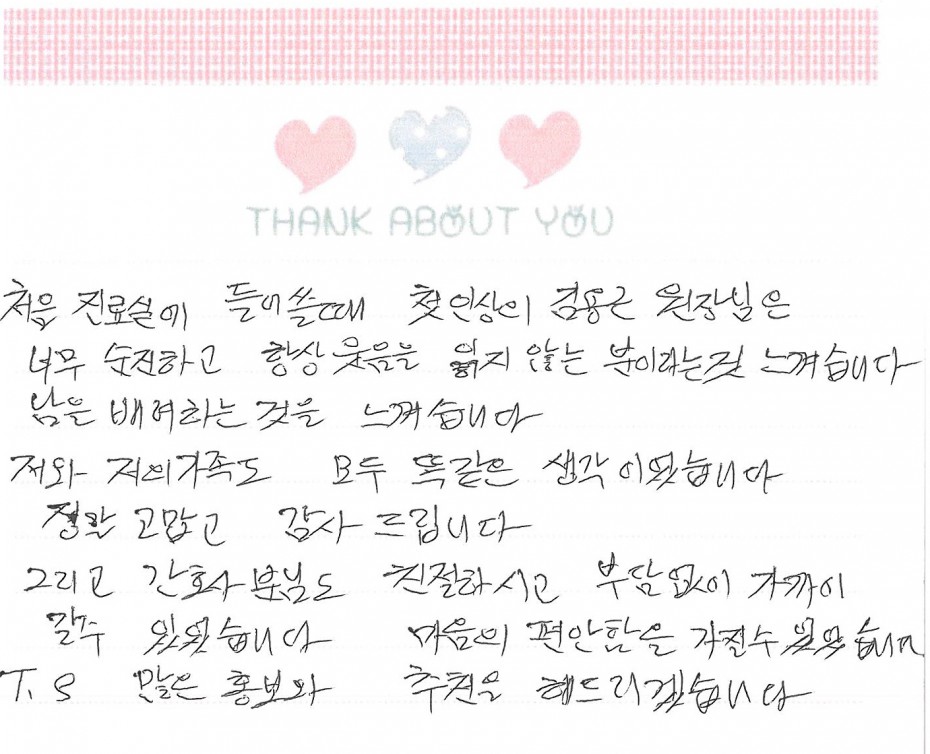 THANK ABOUT YOU
처음 진료실에 들어쓸때 첫인상이 김용근 원장님은
너무 순진하고 항상 웃음을 잃지 않는 분이라는것 느껴습니다
남을 배려하는 것을 느껴습니다
저와 저의가족도 모두 똑같은 생각이였습니다
정말 고맙고 감사 드립니다
그리고 간호사분님도 친절하시고 부담없이 가까이
갈수 있었습니다 마음의 편안함을 가질수 있었습니다
T. S 많은 홍보와 추천을 해드리겠습니다